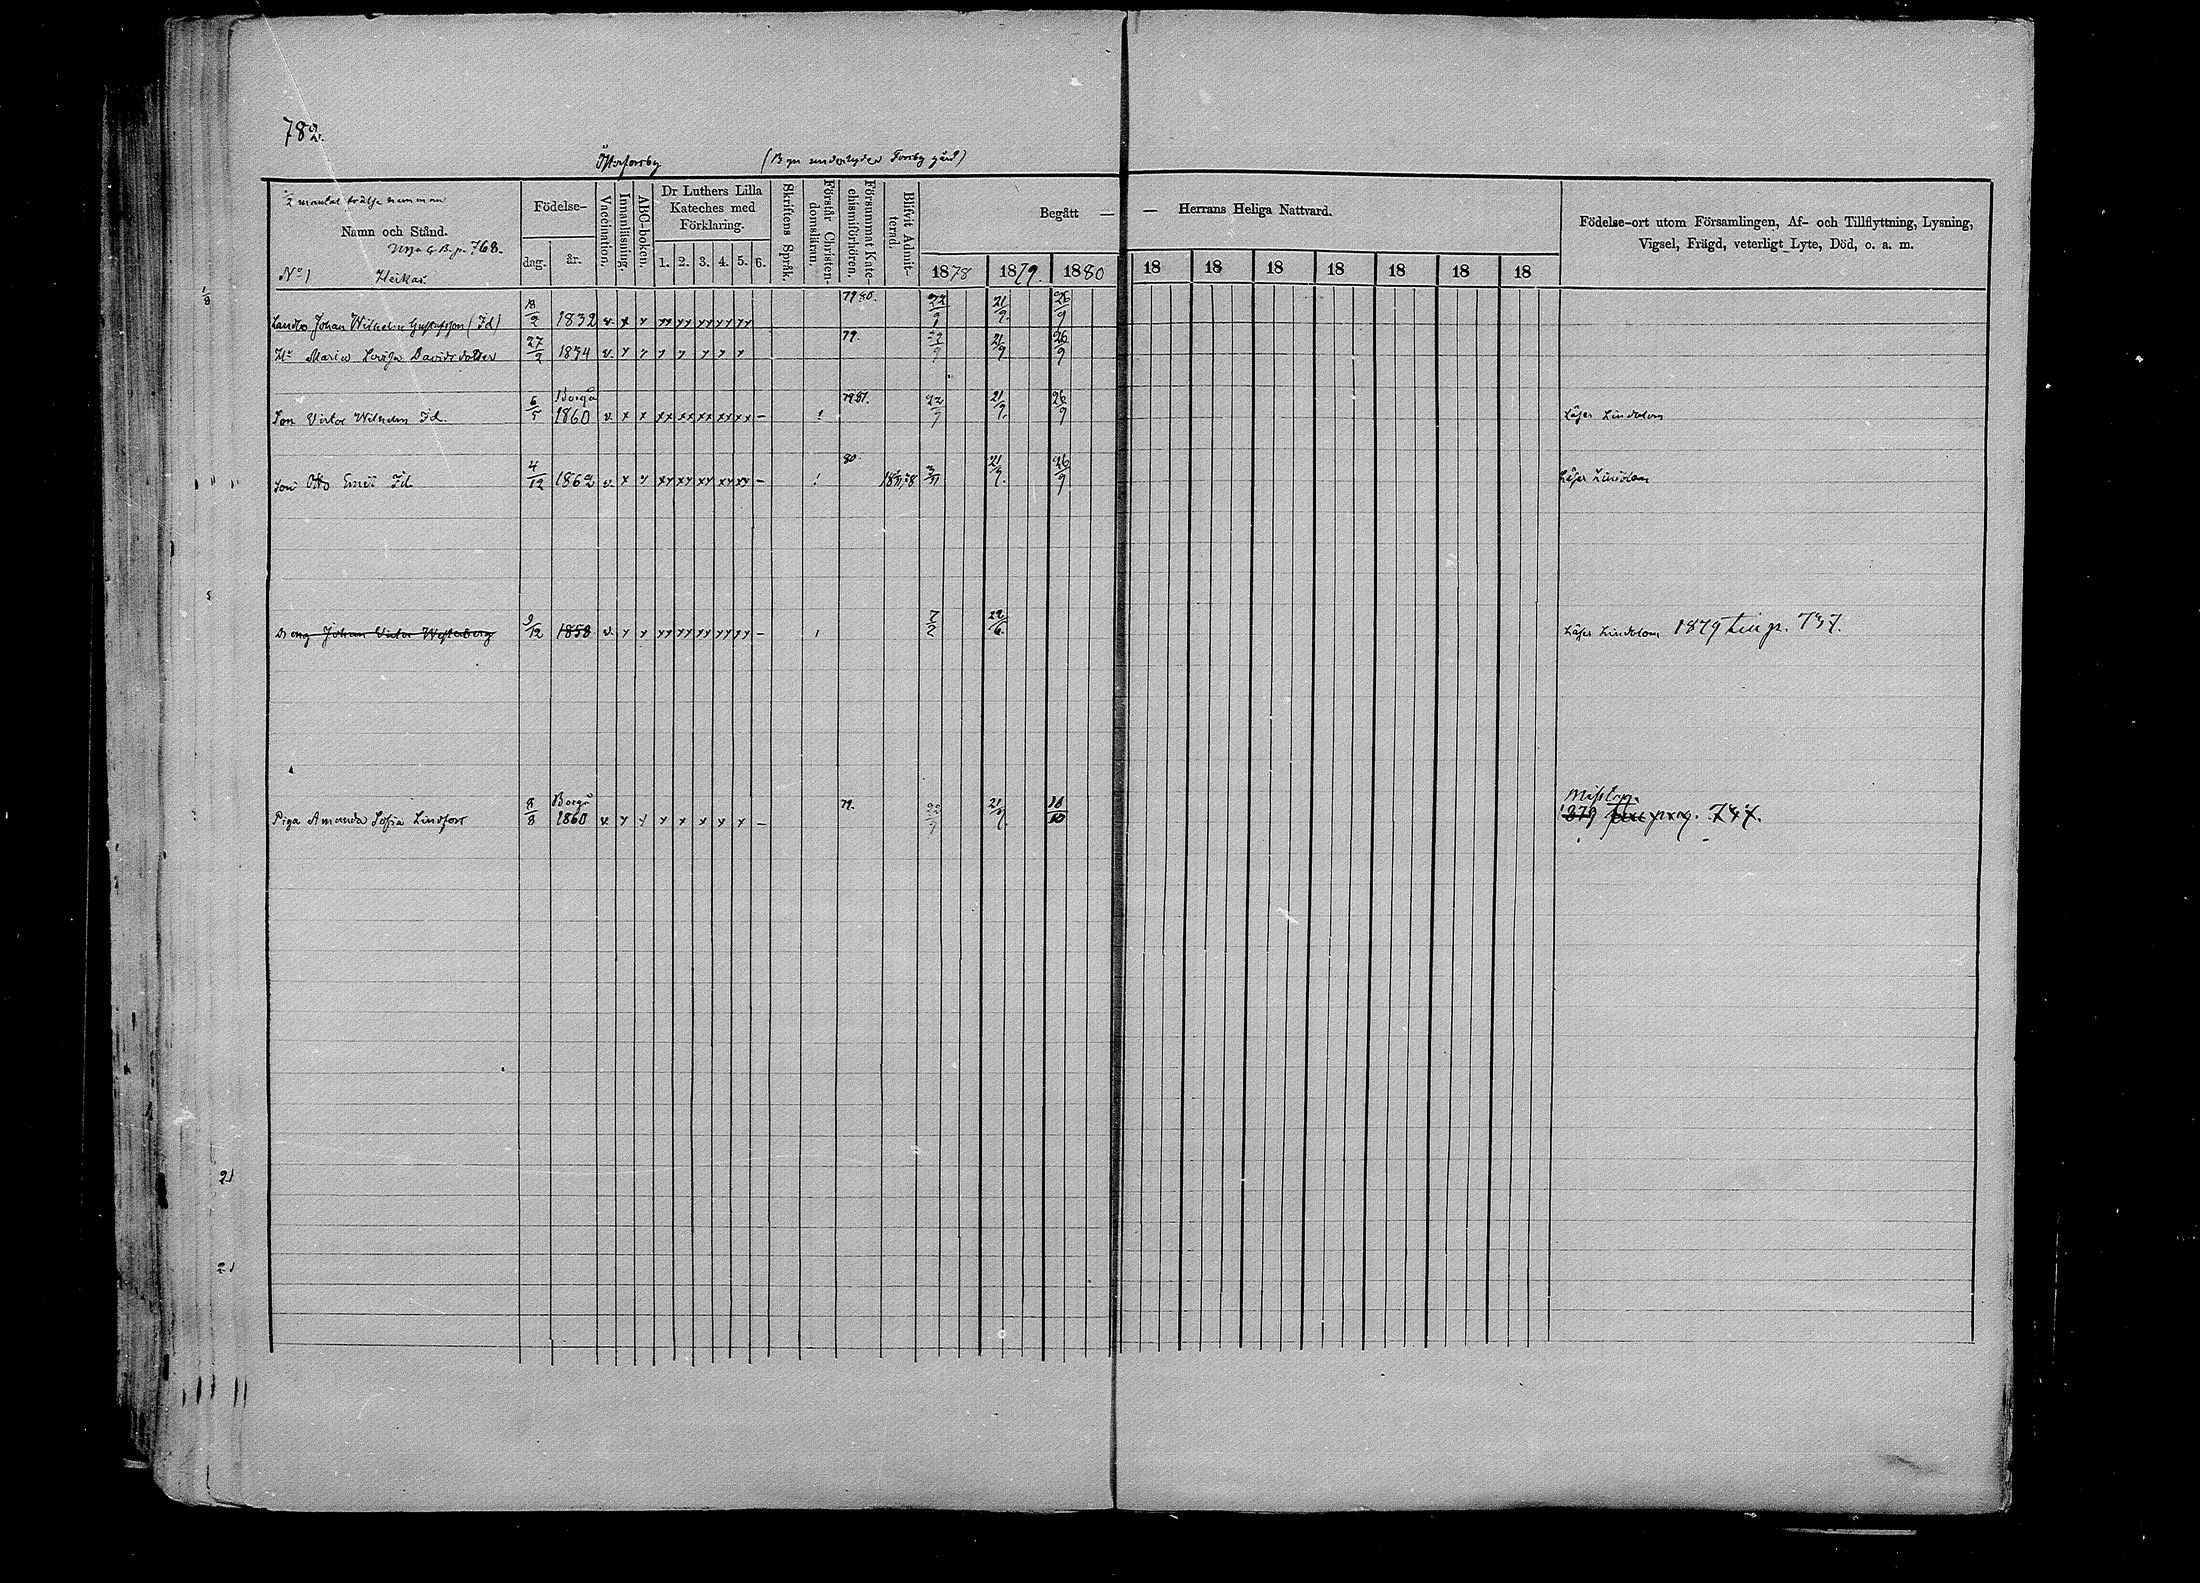 782.
Österforsby (Byn underlyder Forsby gård)
Namn och Stånd.
p. 768.
No 1 Heikas.
Födelse-
dag. år.
Vaccination.
Innanläsning.
ABC-boken.
Dr Luthers Lilla
Kateches med
Förklaring.
1. 2. 3. 4. 5. 6.
Skriftens Språk.
Förstår Christendomsläran.
Försummat Katechismiförhören.
Blifvit Admitterad.
Begått — — Herrans Heliga Nattvard.
1878 1879. 1880 18 18 18 18 18 18 18
Födelse-ort utom Församlingen, Af- och Tillflyttning, Lysning,
Vigsel, Frägd, veterligt Lyte, Död, o. a. m.
Johan Wilhelm Gustafsson (Jd) 1832 v. x x xx xx xx xx xx 79 80. 22/9 21/9. 26/9
Hu Maria Lovisa Davidsdotter 27/2 1834 v. x x x x x x x 79. 22/9 21/9 26/9
Borgå
Son Victor Wilhelm Jd. 6/5 1860 v. x x xx xx xx xx xx – 22/9 21/9. 26/9 Läser Lindblom
Son Otto Emil Jd 4/12 1862 v. x x xx xx xx xx xx – 80. 3/11 21/9. 26/9 Läser Lindblom
Dreng Johan Victor Westerberg 9/12 1858 v. x x xx xx xx xx xx – 7/2 22/6. Läser Lindblom 1879 till p. 747.
Borgå
Piga Amanda Sofia Lindfors 8/8 1860 v. x x x x x x x – 79. 22/9 21/9. 10/10 1879 747.